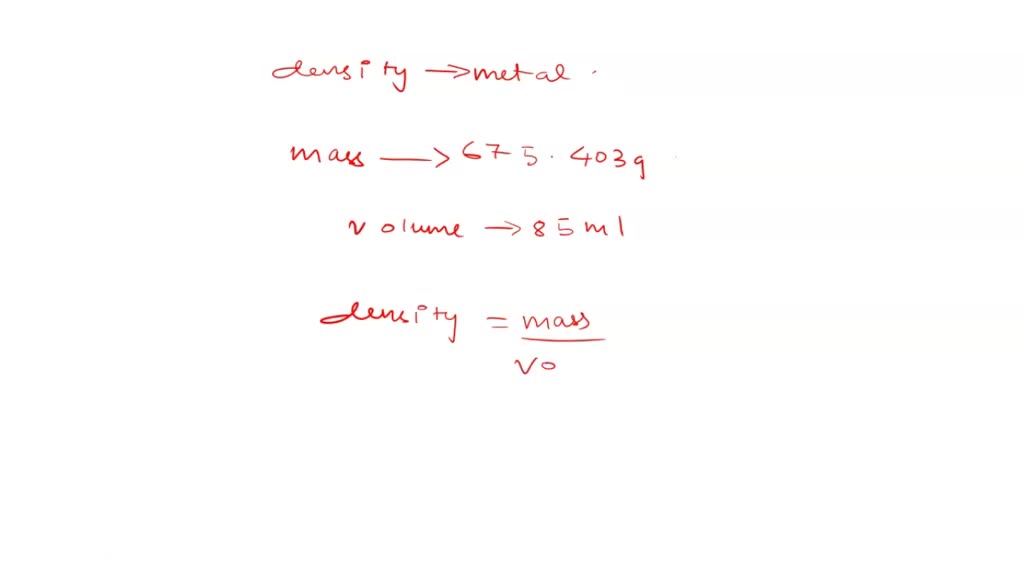 density → metal .
mass → 675.403g
volume → 85ml
density = mass
vo